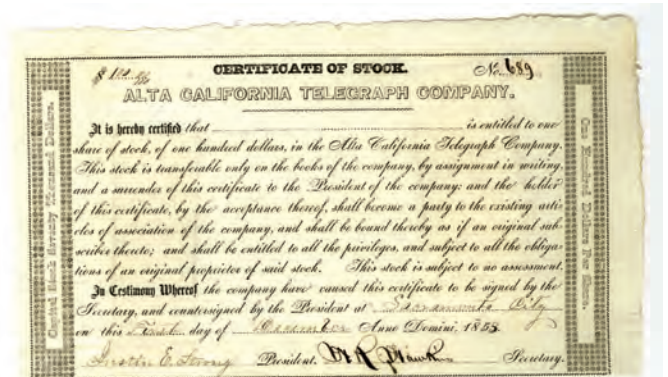 $ 100
CERTIFICATE OF STOCK.
No. 689
ALTA CALIFORNIA TELEGRAPH COMPANY.
It is hereby certified that is entitled to one
share of stock, of one hundred dollars, in the Alta California Telegraph Company.
This stock is transferable only on the books of the company, by assignment in writing,
and a surrender of this certificate to the President of the company: and the holder
of this certificate, by the acceptance thereof, shall become a party to the existing arti-
cles of association of the company, and shall be bound thereby as if an original sub-
scriber thereto; and shall be entitled to all the privileges, and subject to all the obliga-
tions of an original proprietor of said stock. This stock is subject to no assessment.
In Testimony Whereof the company have caused this certificate to be signed by the
Secretary, and countersigned by the President at Sacramento City
on this First day of December Anno Domini, 1853
E. Strong President. Secretary.
Capital Stock Seventy Thousand Dollars.
One Hundred Dollars Per Share.